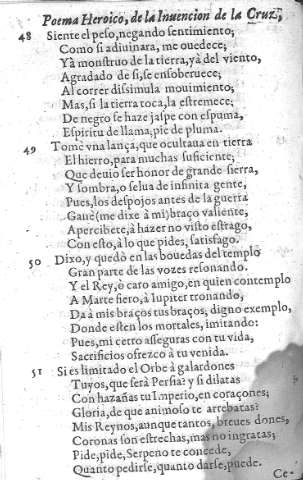 Poema Heroico, de la Inuencion de la Cruz,
48 Siente el peso, negando sentimiento;
Como si adiuinara, me ouedece;
Yà monstruo de la tierra, yà del viento,
Agradado de si, se ensoberuece;
Al correr dissimula mouimiento;
Mas, si la tierra toca, la estremece;
De negro se haze jaspe con espuma,
Espiritu de llama, pie de pluma.
49 Tomè vna lança, que ocultaua en tierra
El hierro, para muchas suficiente;
Que deuio ser honor de grande sierra,
Y sombra, o selua de infinita gente,
Pues, los despojos antes de la guerra
Ganè (me dixe à mi) braço valiente,
Apercibete, à hazer no visto estrago,
Con esto, à lo que pides, satisfago.
50 Dixo, y quedò en las bouedas del templo
Gran parte de las vozes resonando.
Y el Rey, ò caro amigo, en quien contemplo
A Marte fiero, à Iupiter tronando,
Da à mis braços tus braços; digno exemplo,
Donde esten los mortales, imitando:
Pues, mi cetro asseguras con tu vida,
Sacrificios ofrezco à tu venida.
51 Si es limitado el Orbe à galardones
Tuyos, que serà Persia? y si dilatas
Con hazañas tu Imperio, en coraçones;
Gloria, de que animoso te arrebatas?
Mis Reynos, aunque tantos, breues dones,
Coronas son estrechas, mas no ingratas;
Pide, pide, Serpeno te concede,
Quanto pedirse, quanto darse, puede.
Ce-